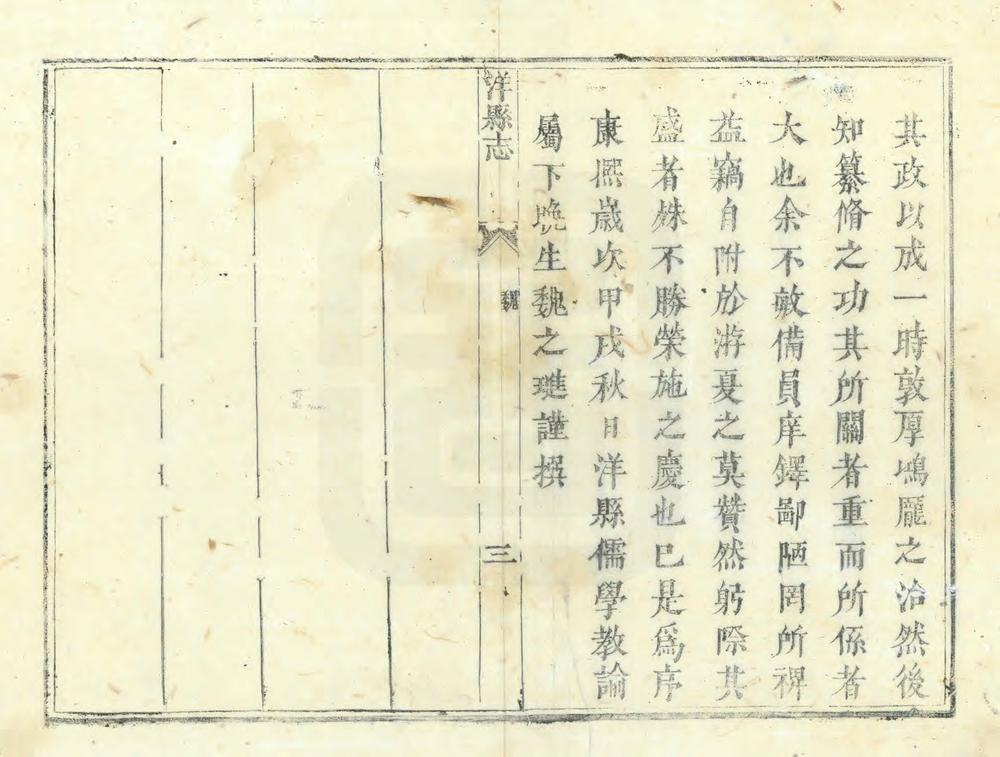 其政以成一時敦厚鴻龎之治然後
知纂脩之功其所關者重而所係者
大也余不敏備員庠鐸鄙陋罔所裨
益竊自附於游夏之莫贊然躬際其
盛者殊不勝榮施之慶也已是爲序
康熙歲次甲戌秋日洋縣儒學教諭
屬下晚生魏之璡謹撰
洋縣志
魏
三